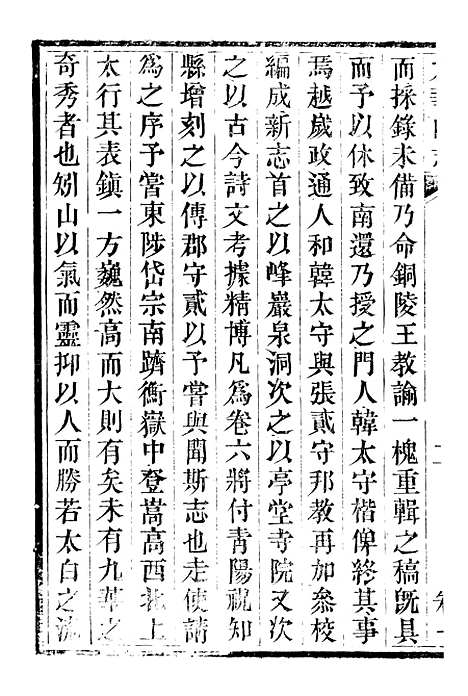 而採錄未備乃命銅陵王教諭一槐重輯之稿既具
而予以休致南還乃授之門人韓太守楷俾終其事
焉越歲政通人和韓太守與張貳守邦教再加叅校
編成新志首之以峰巖泉洞次之以亭堂寺院又次
之以古今詩文考據精博凡爲卷六將付青陽祝知
縣增刻之以傳郡守貳以予嘗與聞斯志也走使請
爲之序予嘗東陟岱宗南躋衡嶽中登嵩高西北上
太行其表鎮一方巍然高而大則有矣未有九華之
奇秀者也矧山以氣而靈抑以人而勝若太白之流